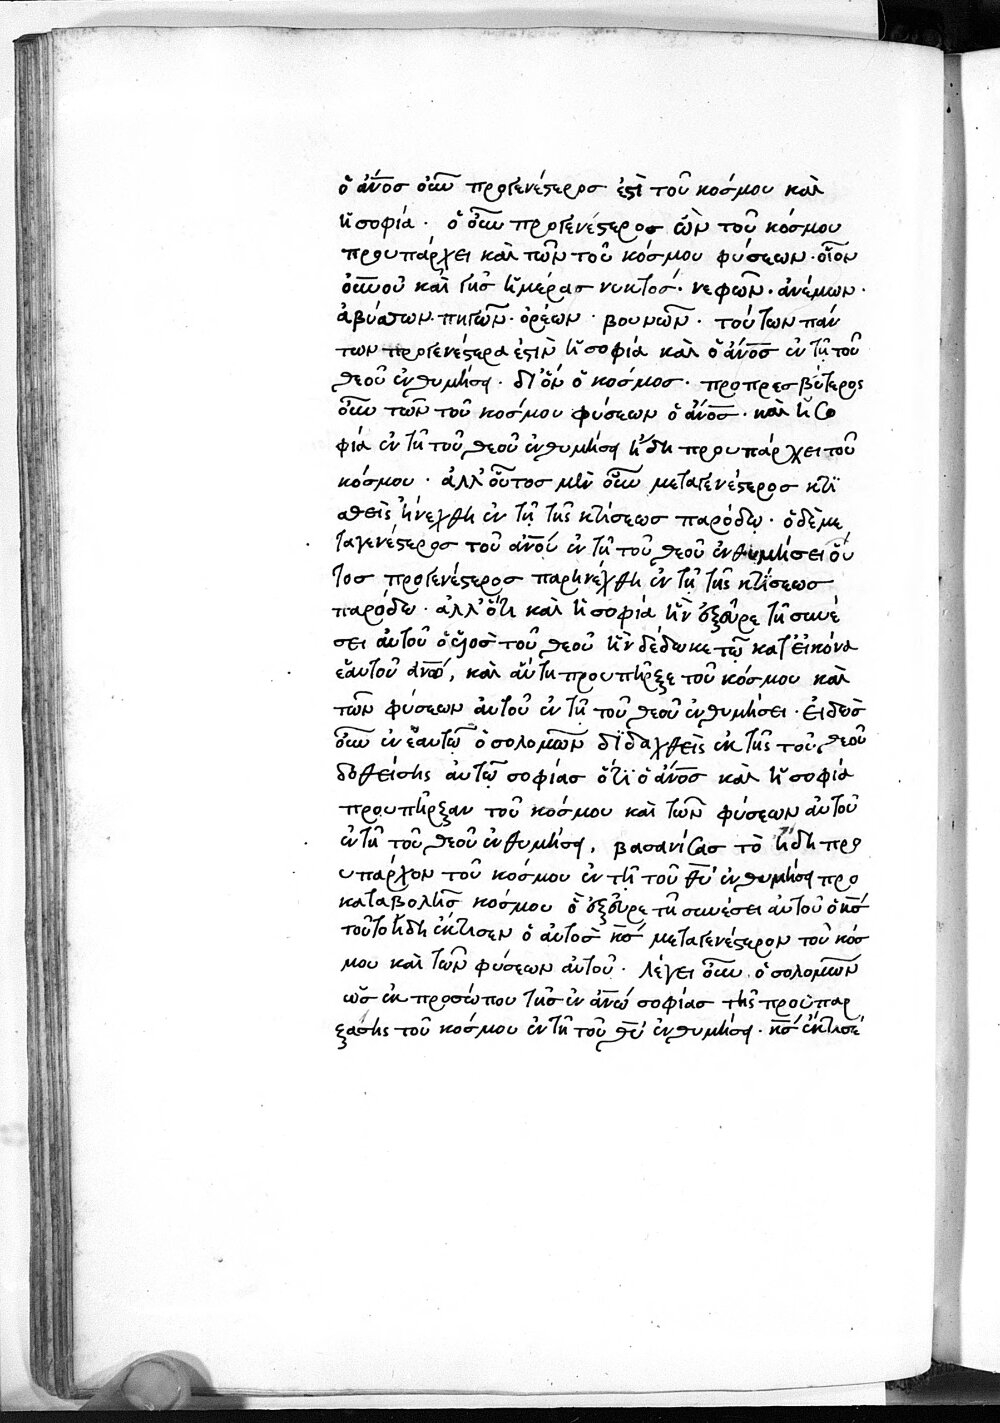 ὁ ἄν̅ο̅ς οὖν προγενέστερος ἐστὶ τοῦ κόσμου καὶ
ἡ σοφία · ὁ οὖν προγενέστερος ὢν τοῦ κόσμου
προυπάρχει καὶ τῶν τοῦ κόσμου φύσεων · οἷον
ο̅υ̅ν̅ο̅υ̅ καὶ γῆς ἡμέρας νυκτὸς · νεφῶν · ἀνέμων ·
ἀβύσσων · πηγῶν · ὀρέων · βουνῶν · τούτων πάν
των προγενέστερα ἐστὶν ἡ σοφία καὶ ὁ ἄν̅ο̅ς ἐν τῆ τοῦ
θεοῦ ἐνθυμήσει · δι' ὃν ὁ κόσμος · προπρεσβύτερος
οὖν τῶν τοῦ κόσμου φύσεων ὁ ἄν̅ο̅ς · καὶ ἡ σο
φία ἐν τῆ τοῦ θεοῦ ἐνθυμήσει ἤδη προυπάρχει τοῦ
κόσμου · ἀλλ' οὗτος μὲν οὖν μεταγενέστερος κτι
σθεὶς ἠνέχθη ἐν τῆ τῆς κτίσεως παρόδω · ὁ δὲ με
ταγενέστερος τοῦ ἀν̅ο̅υ̅ ἐν τῆ τοῦ θεοῦ ἐνθυμήσει οὗ
τος προγενέστερος παρηνέχθη ἐν τῆ τῆς κτίσεως
παρόδω · ἀλλ' ὅτι καὶ ἡ σοφία ἣν ἐξεῦρε τῆ συνέ
σει αὐτοῦ ὁ υἱὸς τοῦ θεοῦ ἣν δέδωκε τῶ κατ' εἰκόνα
ἑαυτοῦ ἀν̅ω̅, καὶ αὕτη προυπῆρξε τοῦ κόσμου καὶ
τῶν φύσεων αὐτοῦ ἐν τῆ τοῦ θεοῦ ἐνθυμήσει · εἰδὼς
οὖν ἐν ἑαυτῶ ὁ σολομῶν διδαχθεὶς ἐκ τῆς τοῦ θεοῦ
δοθείσης αὐτῶ σοφίας ὅτι ὁ ἄν̅ο̅ς καὶ ἡ σοφία
προυπῆρξαν τοῦ κόσμου καὶ τῶν φύσεων αὐτοῦ
ἐν τῆ τοῦ θεοῦ ἐνθυμήσει, βασανίσας τὸ ἤδη προ
υπάρχον τοῦ κόσμου ἐν τῆ τοῦ θ̅υ̅ ἐνθυμήσει προ
καταβολῆς κόσμου ὃ ἐξεῦρε τῆ συνέσει αὐτοῦ ὁ κ̅ς̅
τοῦτο ἤδη ἔκτισεν ὁ αὐτὸς κ̅ς̅ μεταγενέστερον τοῦ κόσ
μου καὶ τῶν φύσεων αὐτοῦ · λέγει οὖν ὁ σολομῶν
ὡς ἐκ προσώπου τῆς ἐν ἀν̅ω̅ σοφίας τῆς προϋπαρ
ξάσης τοῦ κόσμου ἐν τῆ τοῦ θ̅υ̅ ἐνθυμήσει · κ̅ς̅ ἔκτισέ